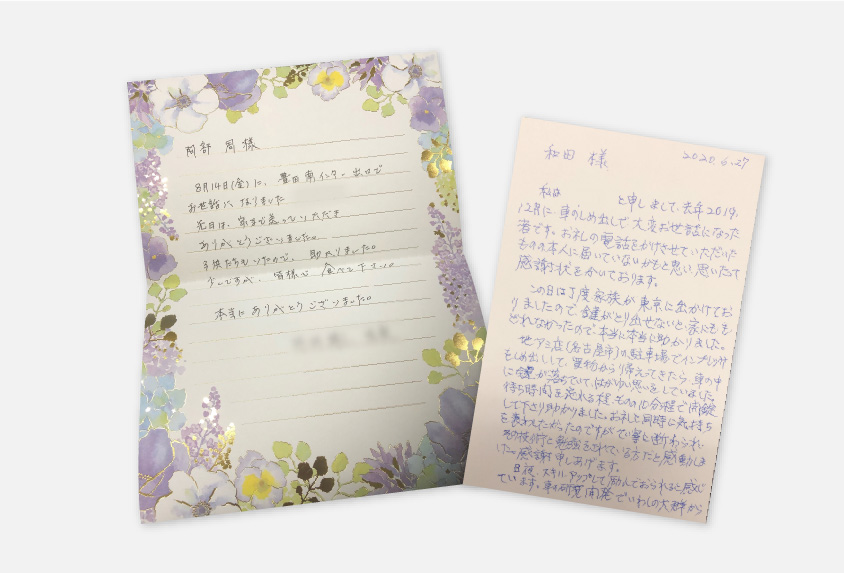 阿部 周 様
8月14日(金)に、豊田東インター出口で
お世話になりました
先日は、家まで送っていただき
ありがとうございました。
子供たちもいたので、助かりました。
少しですが、皆様で食べて下さい。
本当にありがとうございました。
和田 様
2020.6.27
私は と申しまして、去年2019.
12月に車のしめ出しで大変お世話になった
者です。お礼の電話をかけさせていただいた
ものの本人に届いていないかもと思い、思いたって
感謝状を書いております。
この日は丁度家族が東京に出かけてお
りましたので、鍵がとり出せないと家にもも
どれなかったので本当に本当に助かりました。
地アミ店(名古屋市)の駐車場でインプレッサ
をしめ出しして、買物から帰えってきたら、車の中
に鍵が落ちていて、はがゆい思いをしていました。
待ち時間を忘れる程、ものの10分程で開錠
して下さり助かりました。お礼と同時に気持ち
を表わしたかったのですが丁寧に断わられ
技術と勉強をされている方だと感動しま
した。感謝申しあげます。
日夜、スキルアップして励んでおられると感じ
ています。車の研究開発でいわしの大群から